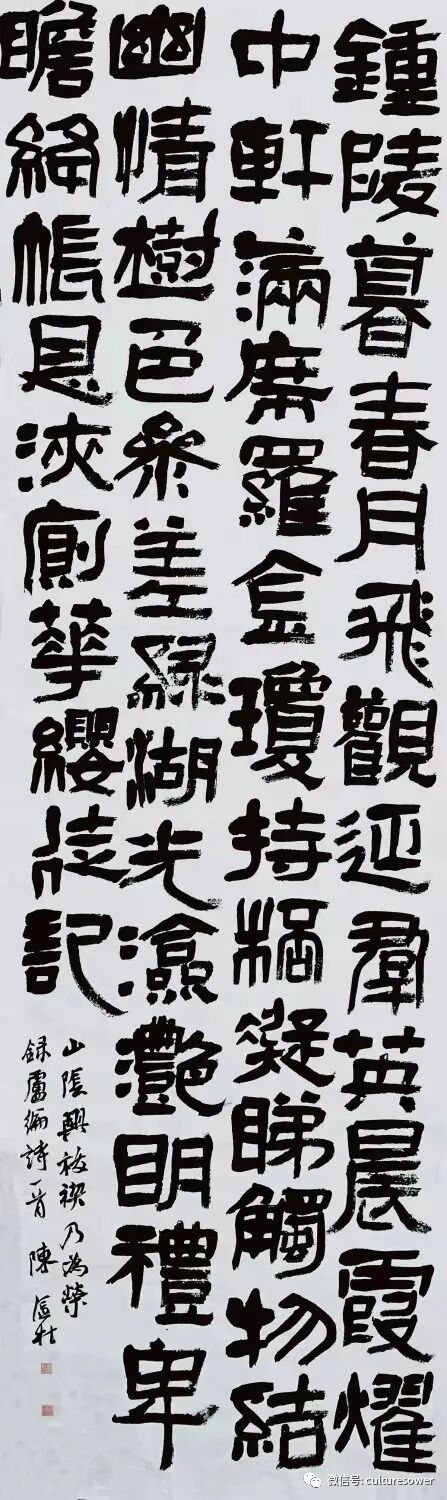 鍾陵暮春月飛觀延羣英晨霞耀
中軒滿席羅金瓊持杯凝睇觸物結
幽情樹色參差綠湖光瀲灩明禮卑
瞻絳帳恩浹廁華纓徒記
山陰興祓禊乃為榮
錄盧綸詩一首 陳
微信号: culturesower